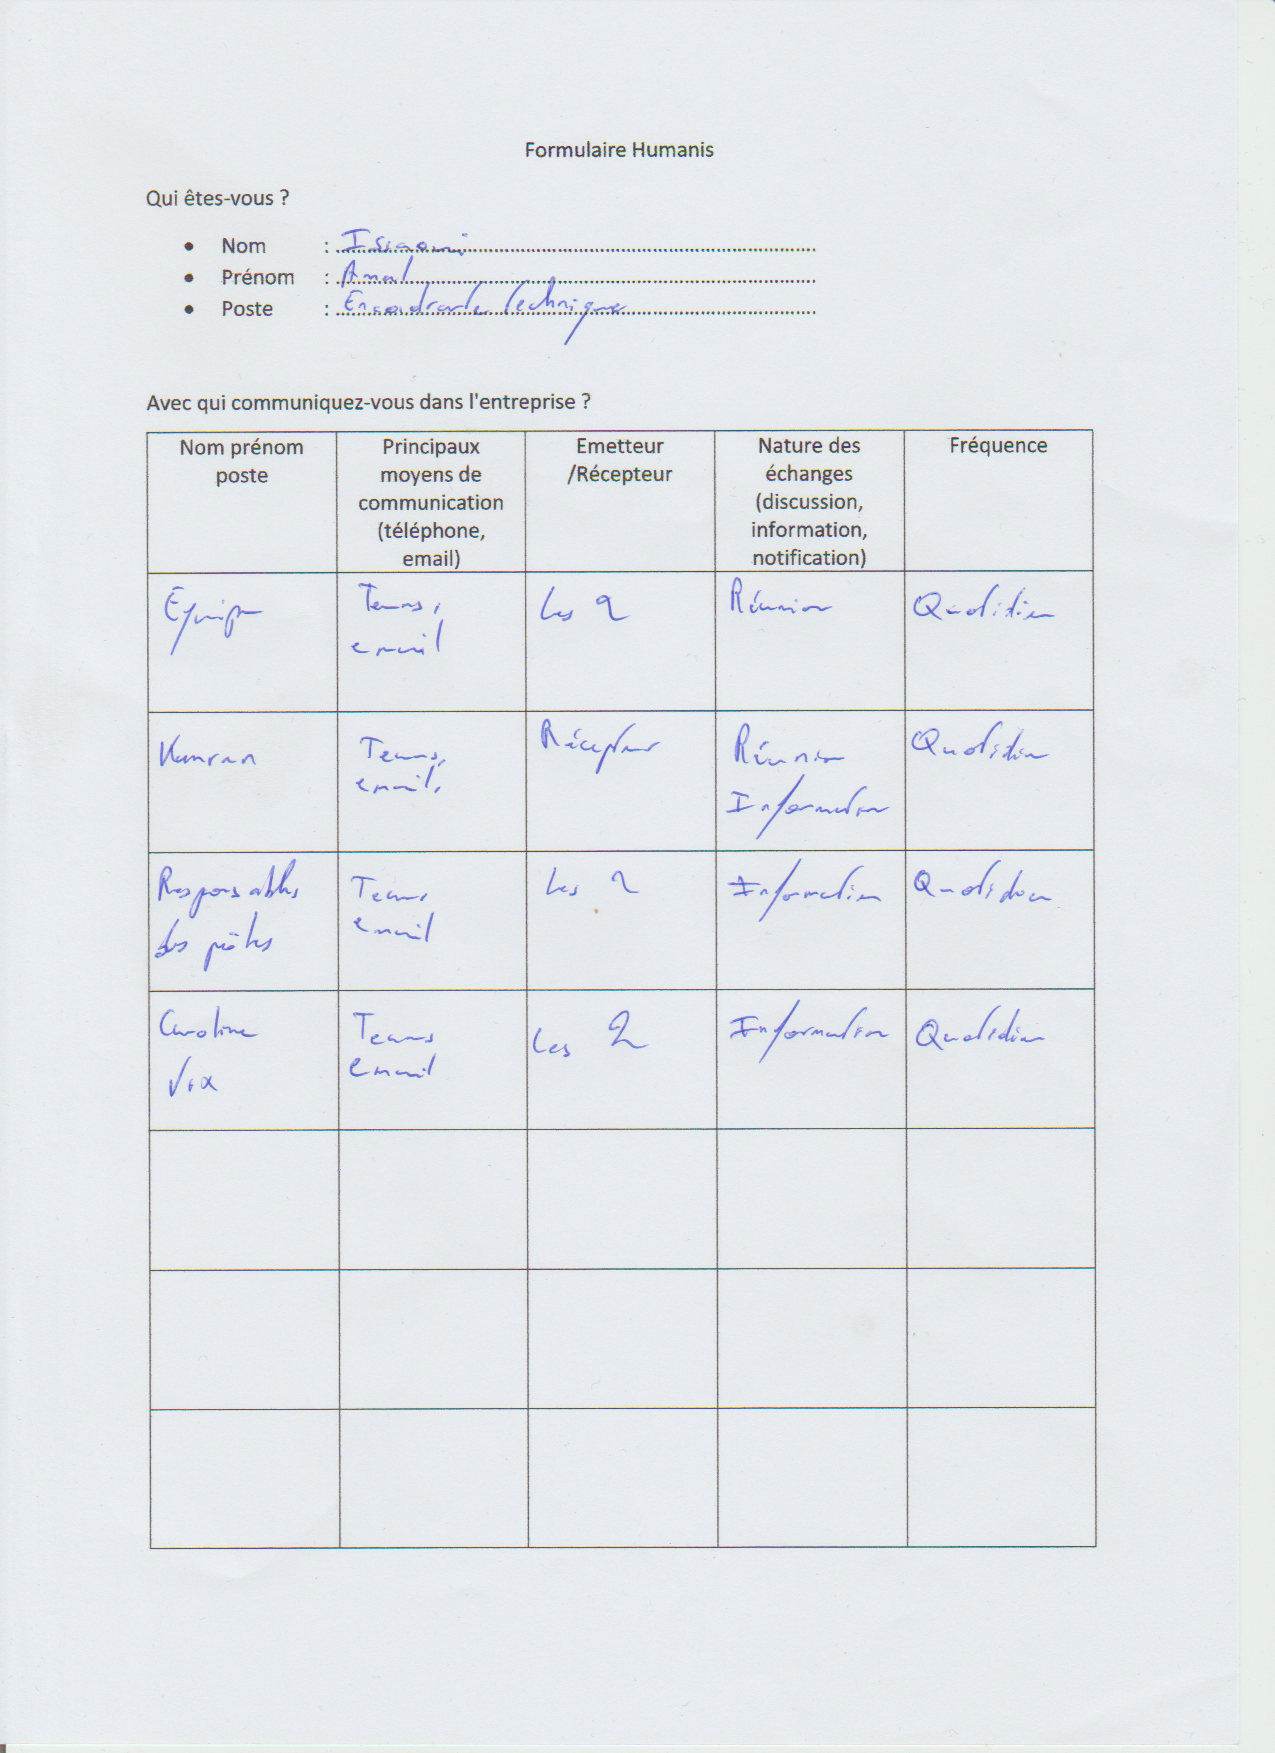 Formulaire Humanis
Qui êtes-vous ?
• Nom :
• Prénom : Amal
• Poste : Encadrante Technique
Avec qui communiquez-vous dans l'entreprise ?
Nom prénom poste
Principaux moyens de communication (téléphone, email)
Emetteur /Récepteur
Nature des échanges (discussion, information, notification)
Fréquence
Equipe
Teams, email
Les 2
Réunion
Quotidien
Kamran
Teams, email,
Récepteur
Réunion Information
Quotidien
Responsables des pôles
Teams email
Les 2
Information
Quotidien
Caroline
Teams email
Les 2
Information
Quotidien